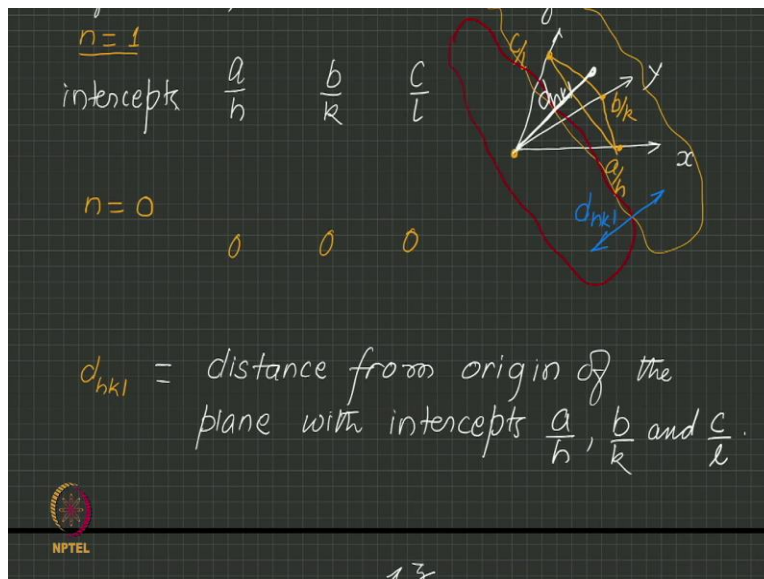 n = 1
intercepts a/h b/k c/l
c/l
d_hkl
y
b/k
x
a/h
d_hkl
n = 0
0 0 0
d_hkl = distance from origin of the
plane with intercepts a/h, b/k and c/l.
NPTEL